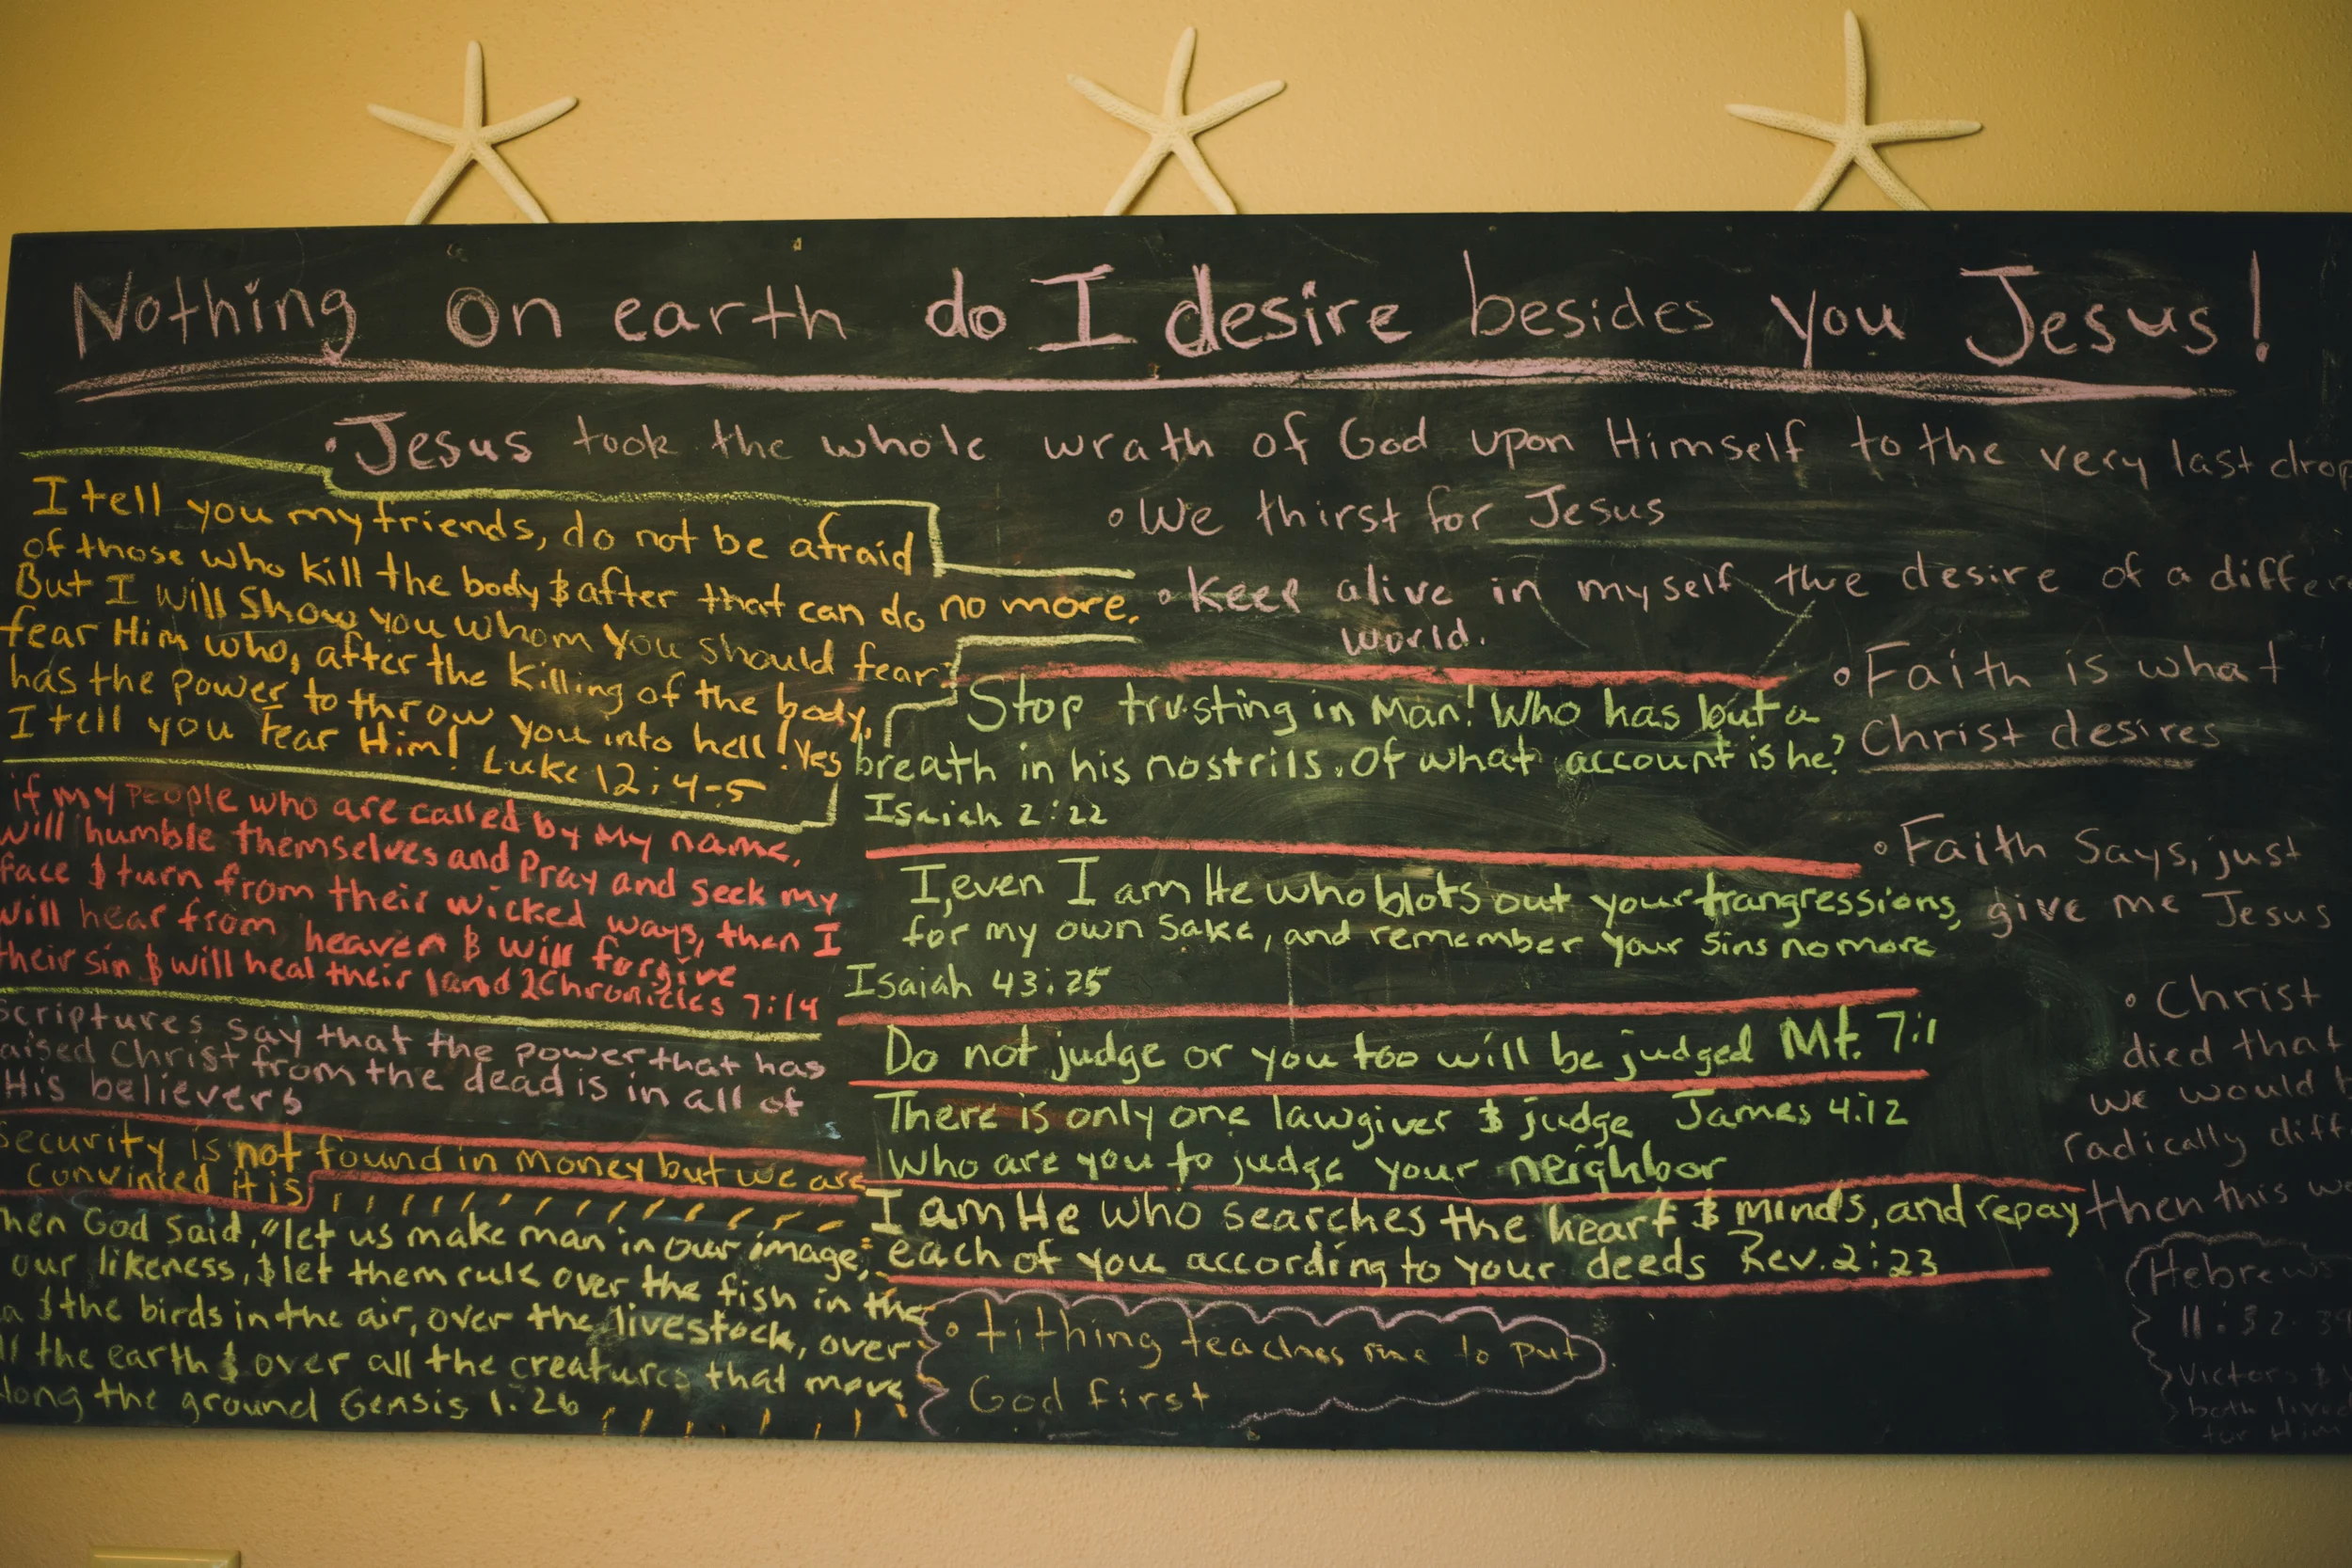 Nothing on earth do I desire besides you Jesus!
• Jesus took the whole wrath of God upon Himself to the very last drop
• We thirst for Jesus
• Keep alive in myself the desire of a differ
world.
• Faith is what
Christ desires
• Faith Says, just
give me Jesus
• Christ
died that
we would
radically diff
then this
Hebrews
11:32-39
Victors &
both live
for Him
I tell you my friends, do not be afraid
of those who kill the body & after that can do no more.
But I will show you whom you should fear:
fear Him who, after the killing of the body,
has the power to throw you into hell! Yes
I tell you fear Him! Luke 12:4-5
if my people who are called by my name,
will humble themselves and Pray and seek my
face & turn from their wicked ways, then I
will hear from heaven & will forgive
their sin & will heal their land 2Chronicles 7:14
Scriptures say that the power that has
aised Christ from the dead is in all of
His believers
Security is not found in money but we are
convinced it is
hen God said, "let us make man in our image,
our likeness, & let them rule over the fish in the
a & the birds in the air, over the livestock, over
ll the earth & over all the creatures that move
long the ground Gensis 1:26
Stop trusting in Man! Who has but a
breath in his nostrils. Of what account is he?
Isaiah 2:22
I, even I am He who blots out your trangressions,
for my own sake, and remember your sins no more
Isaiah 43:25
Do not judge or you too will be judged Mt. 7:1
There is only one lawgiver & judge James 4:12
Who are you to judge your neighbor
I am He who searches the heart & minds, and repay
each of you according to your deeds Rev. 2:23
• tithing teaches me to put
God first